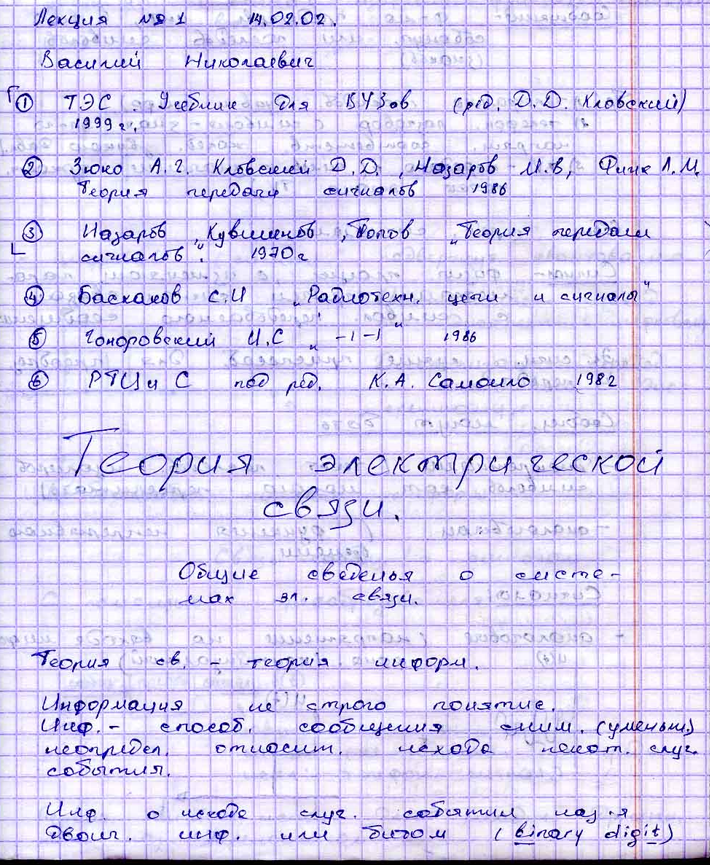 Лекция №1 14.02.02.
Василий Николаевич
① ТЭС. Учебник для ВУЗов (ред. Д.Д. Кловский)
1999г.
② Зюко А.Г. Кловский Д.Д., Назаров М.В, Финк Л.М.
Теория передачи сигналов 1986
③ Назаров, Кувшинов, Попов „Теория передачи
сигналов". 1970г
④ Баскаков С.И „Радиотехн. цепи и сигналы"
⑤ Гоноровский И.С „ -ı-ı "  1986
⑥ РТЦ и С под ред. К.А. Самойло 1982
Теория электрической
связи.
Общие сведенья о систе-
мах эл. связи.
Теория св. - теория информ.
Информация не строго понятие.
Инф. - способ. сообщения сним. (уменьш)
неопредел. относит. исхода некот. случ.
события.
Инф. о исходе случ. события наз-я
двоич. инф. или битом (binary digit)